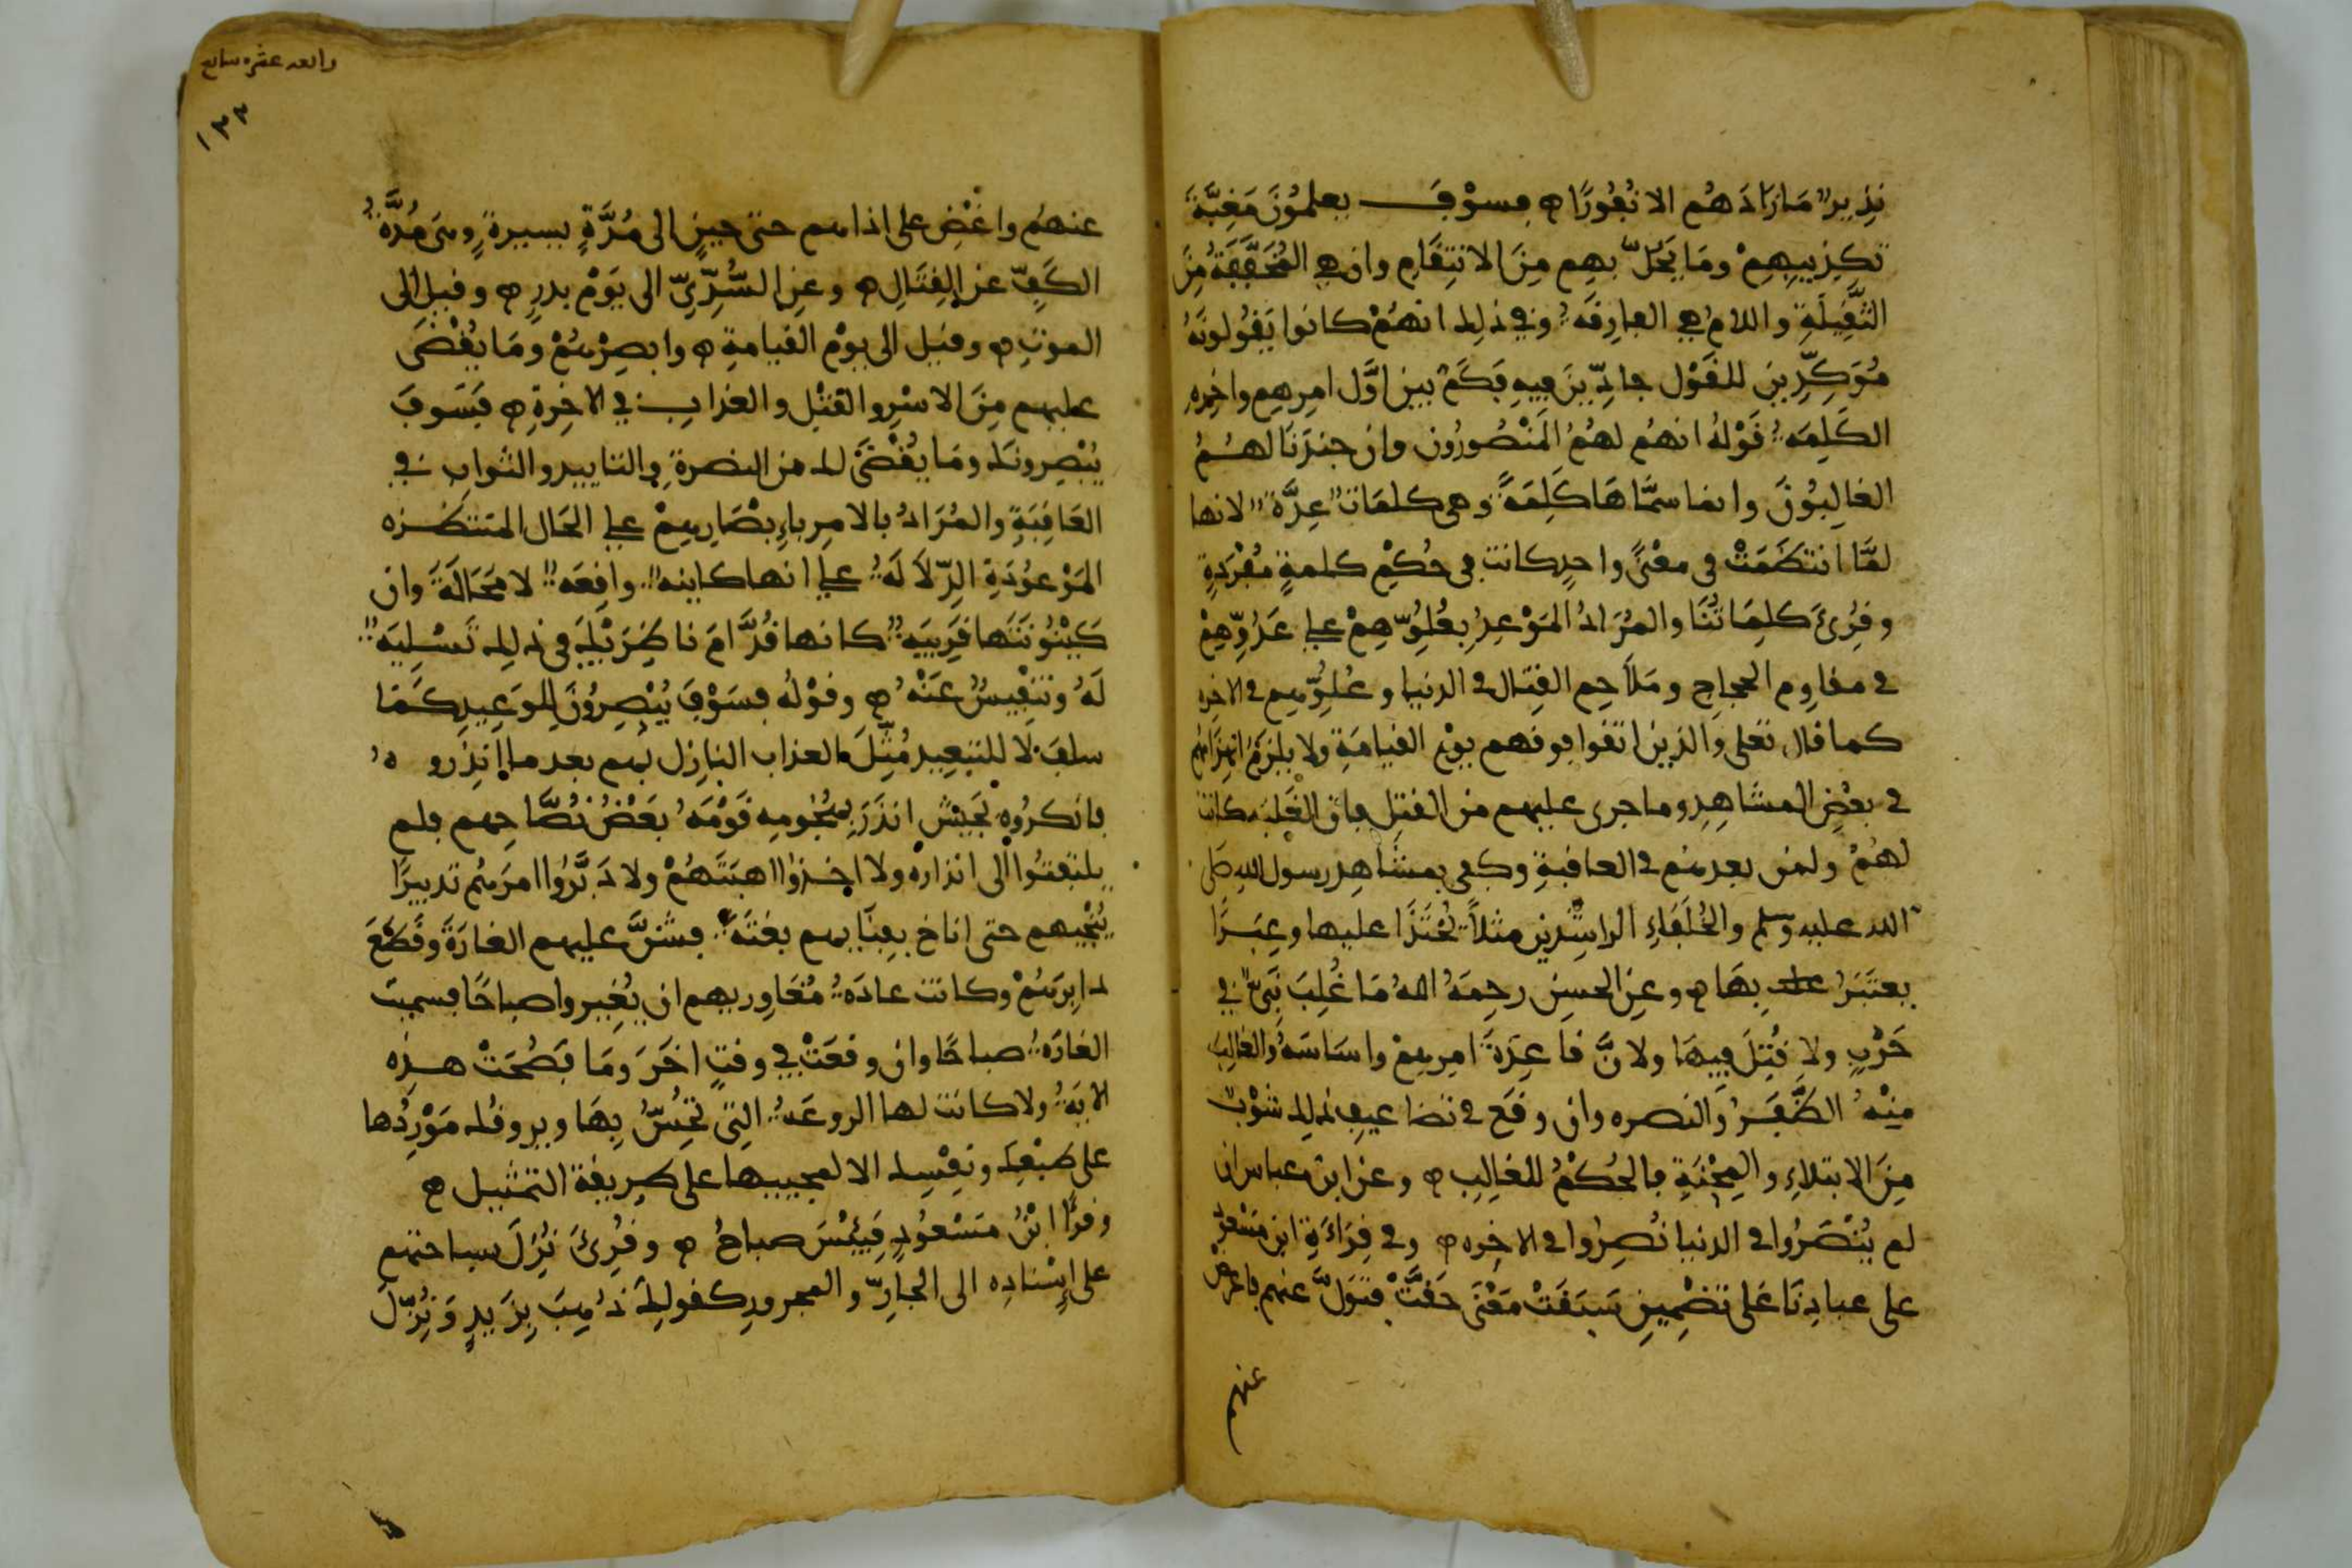 نذير مازادهم الا نفورا فسوف يعلمون مغبة
تكذيبهم وما يحل بهم من الانتقام وان هي المخففة من
الثقيلة واللام هي الفارقة وفي ذلك انهم كانوا يقولونه
مؤكدين للقول جادين فيه فكم بين اول امرهم واخره
الكلمه قوله انهم لهم المنصورون وان جندنا لهم
الغالبون وانما سماها كلمة وهي كلمات عدة لانها
لما انتظمت في معنى واحد كانت في حكم كلمة مفردة
وقرئ كلماتنا والمراد الموعد بعلوهم على عدوهم
في مقاوم الحجاج وملاحم القتال في الدنيا وعلوهم في الاخره
كما قال تعلى والذين اتقوا فوقهم يوم القيامة ولا يلزم انهزامهم
في بعض المشاهد وما جرى عليهم من القتل فان الغلبه كانت
لهم ولمن بعدهم في العاقبة وكفى بمشاهد رسول الله صلى
الله عليه وسلم والخلفاء الراشدين مثلا يحتذا عليها وعبرا
يعتبر بها وعن الحسن رحمه الله ما غلب نبي في
حرب ولا قتل فيها ولان قاعدة امرهم واساسه والغالب
منه الظفر والنصره وان وقع في تضاعيف ذلك شوب
من الابتلاء والمحنة فالحكم للغالب وعن ابن عباس ان
لم ينصروا في الدنيا نصروا في الاخره وفي قراءة ابن مسعود
على عبادنا على تضمين سبقت معنى حقت فتول عنهم فاعرض
عنهم
١٣٣
عنهم واغض على اذاهم حتى حين الى مدة يسيرة وهي مدة
الكف عن القتال وعن السدي الى يوم بدر وقيل الى
الموت وقيل الى يوم القيامة وابصرهم وما يقضى
عليهم من الاسر والقتل والعذاب في الاخرة فسوف
يبصرونك وما يقضى لك من النصرة والتاييد والثواب في
العاقبة والمراد بالامر بابصارهم على الحال المنتظره
الموعودة الدلالة على انها كاينه واقعه لا محالة وان
كينونتها قريبه كانها قدام ناظريك في ذلك تسليه
له وتنفيس عنه وقوله فسوف يبصرون للوعيد كما
سلف لا للتبعيد مثل العذاب النازل بهم بعد ما انذروه
فانكروه بجيش انذر بهجومه قومه بعض نصاحهم فلم
يلتفتوا الى انذاره ولا اخذوا اهبتهم ولا دبروا امرهم تدبيرا
ينجيهم حتى اناخ بفنايهم بغتة فشن عليهم الغارة وقطع
دابرهم وكانت عادة مغاوريهم ان يغيروا صباحا فسميت
الغارة صباحا وان وقعت في وقت اخر وما فصحت هذه
الاية ولا كانت لها الروعه التي تحس بها ويروقك موردها
على طبعك ونفسك الا لمجييها على طريقة التمثيل
وقرا ابن مسعود فبئس صباح وقرئ نزل بساحتهم
على اسناده الى الجار والمجرور كقولك ذهب بزيد ونزل